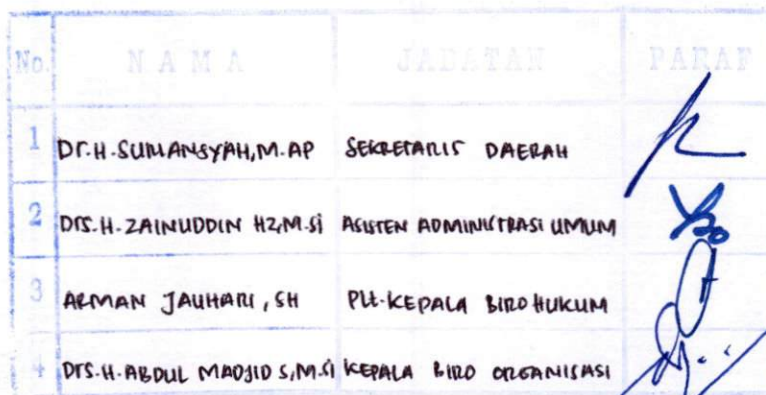 No. NAMA JABATAN PARAF
1 Dr. H. SUMANSYAH, M. AP SEKRETARIS DAERAH
2 Drs. H. ZAINUDDIN HZ, M.Si ASISTEN ADMINISTRASI UMUM
3 ARMAN JAUHARI, SH Plt. KEPALA BIRO HUKUM
4 Drs. H. ABDUL MADJID S, M.Si KEPALA BIRO ORGANISASI